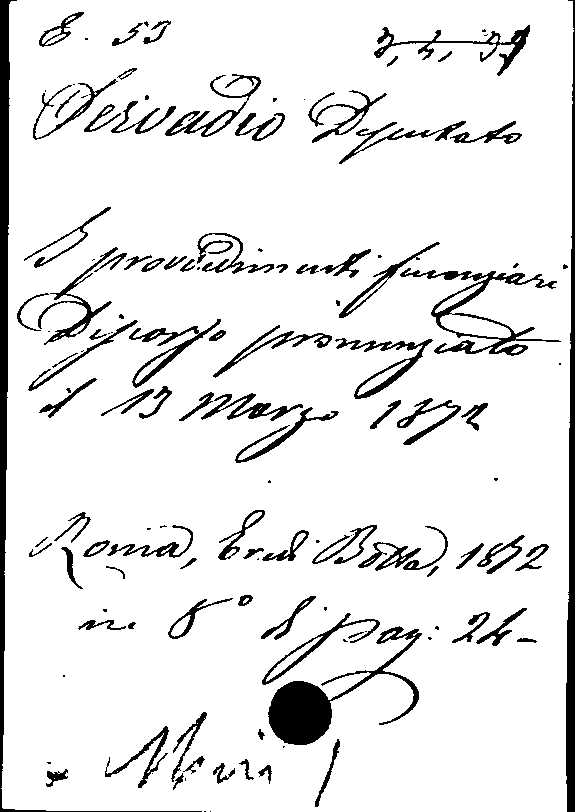 E. 53 3, 4, 37
Servadio Deputato
I provvedimenti finanziari
Discorso pronunziato
il 13 Marzo 1872
Roma, Eredi Botta, 1872
in 8° di pag: 24-